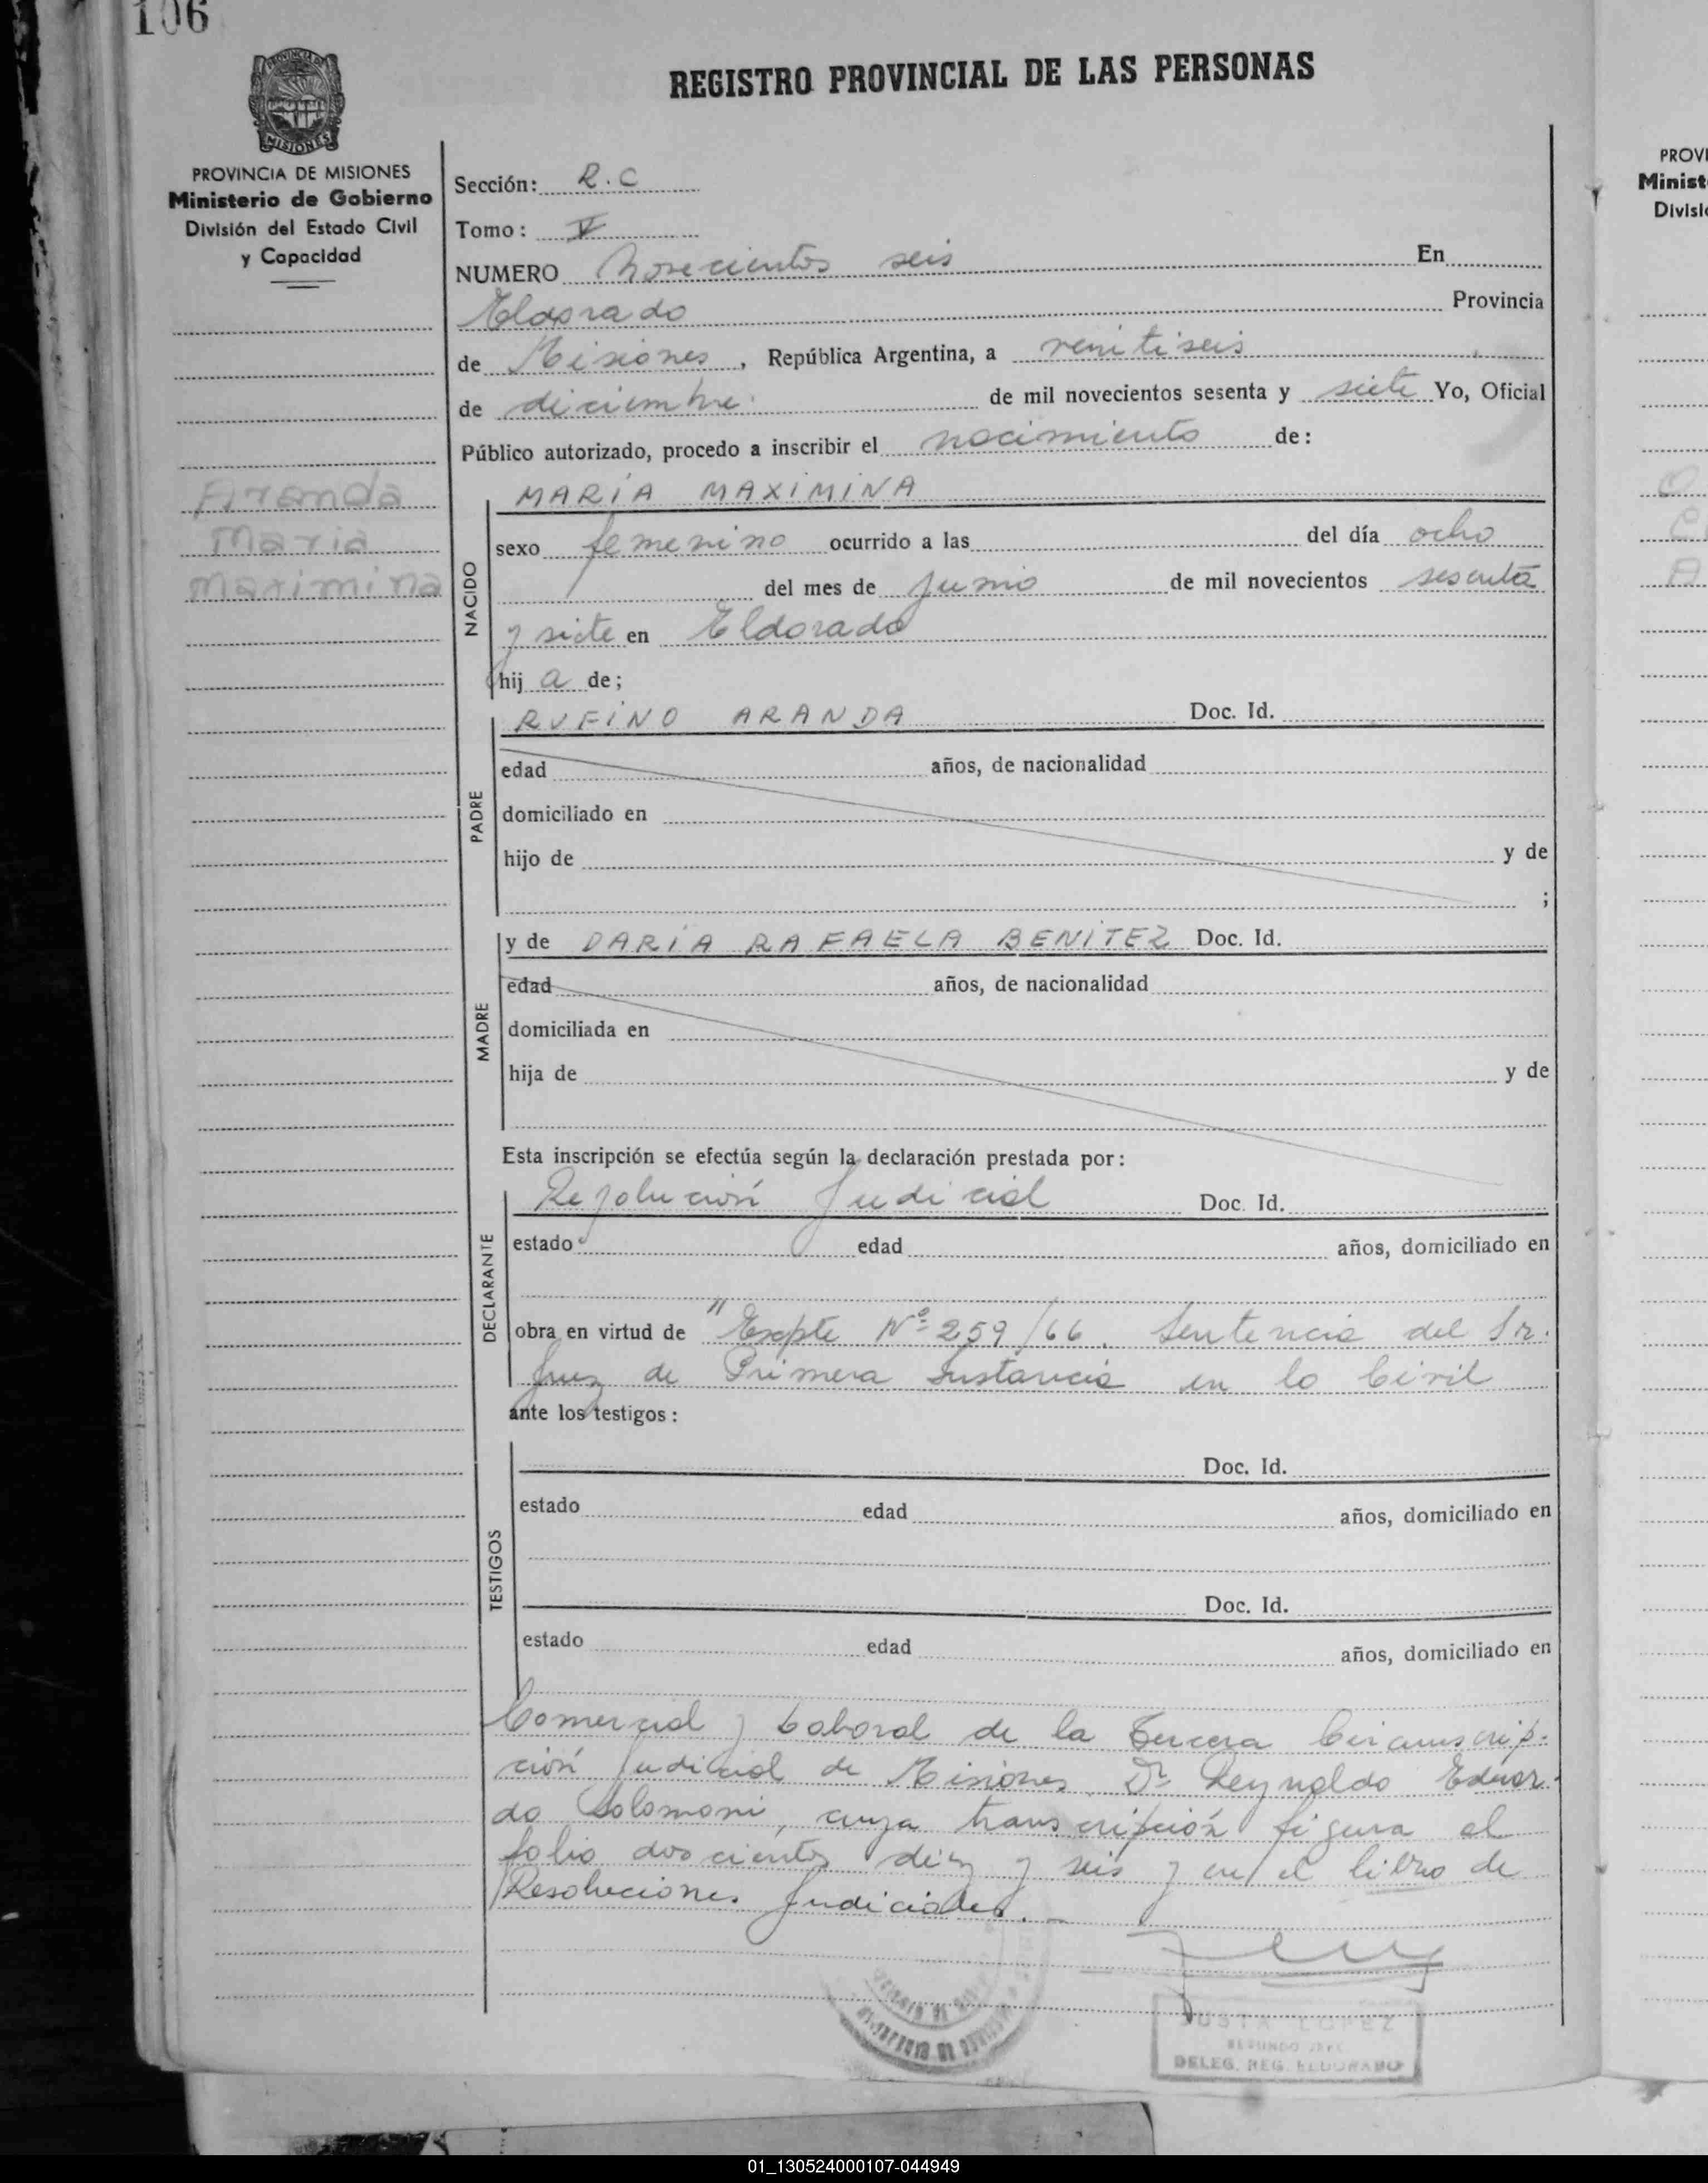 106
REGISTRO PROVINCIAL DE LAS PERSONAS
MISIONES
PROVINCIA DE MISIONES
Ministerio de Gobierno
División del Estado Civil
y Capacidad
Aranda
Maria
Maximina
Sección: R.C
Tomo: V
NUMERO Novecientos seis En
Eldorado Provincia
de Misiones, República Argentina, a veintiseis
de diciembre. de mil novecientos sesenta y siete Yo, Oficial
Público autorizado, procedo a inscribir el nacimiento de:
NACIDO
MARÍA MAXIMINA
sexo femenino ocurrido a las del día ocho
del mes de junio de mil novecientos sesenta
y siete en Eldorado
hij a de;
PADRE
RUFINO ARANDA Doc. Id.
edad años, de nacionalidad
domiciliado en
hijo de y de
;
MADRE
y de DARÍA RAFAELA BENÍTEZ Doc. Id.
edad años, de nacionalidad
domiciliada en
hija de y de
Esta inscripción se efectúa según la declaración prestada por:
DECLARANTE
Resolución Judicial Doc. Id.
estado edad años, domiciliado en
obra en virtud de "Expte Nº 259/66. Sentencia del Sr.
Juez de Primera Instancia en lo Civil
ante los testigos:
TESTIGOS
Doc. Id.
estado edad años, domiciliado en
Doc. Id.
estado edad años, domiciliado en
Comercial y Laboral de la Tercera Circunscrip-
ción Judicial de Misiones Dr. Reynaldo Eduar-
do Solomoni, cuya transcripción figura al
folio doscientos diez y seis y en el libro de
Resoluciones Judiciales.
LOPEZ
SEGUNDO JEFE
DELEG. REG. ELDORADO
PROVI
Minist
Divisi
01_130524000107-044949